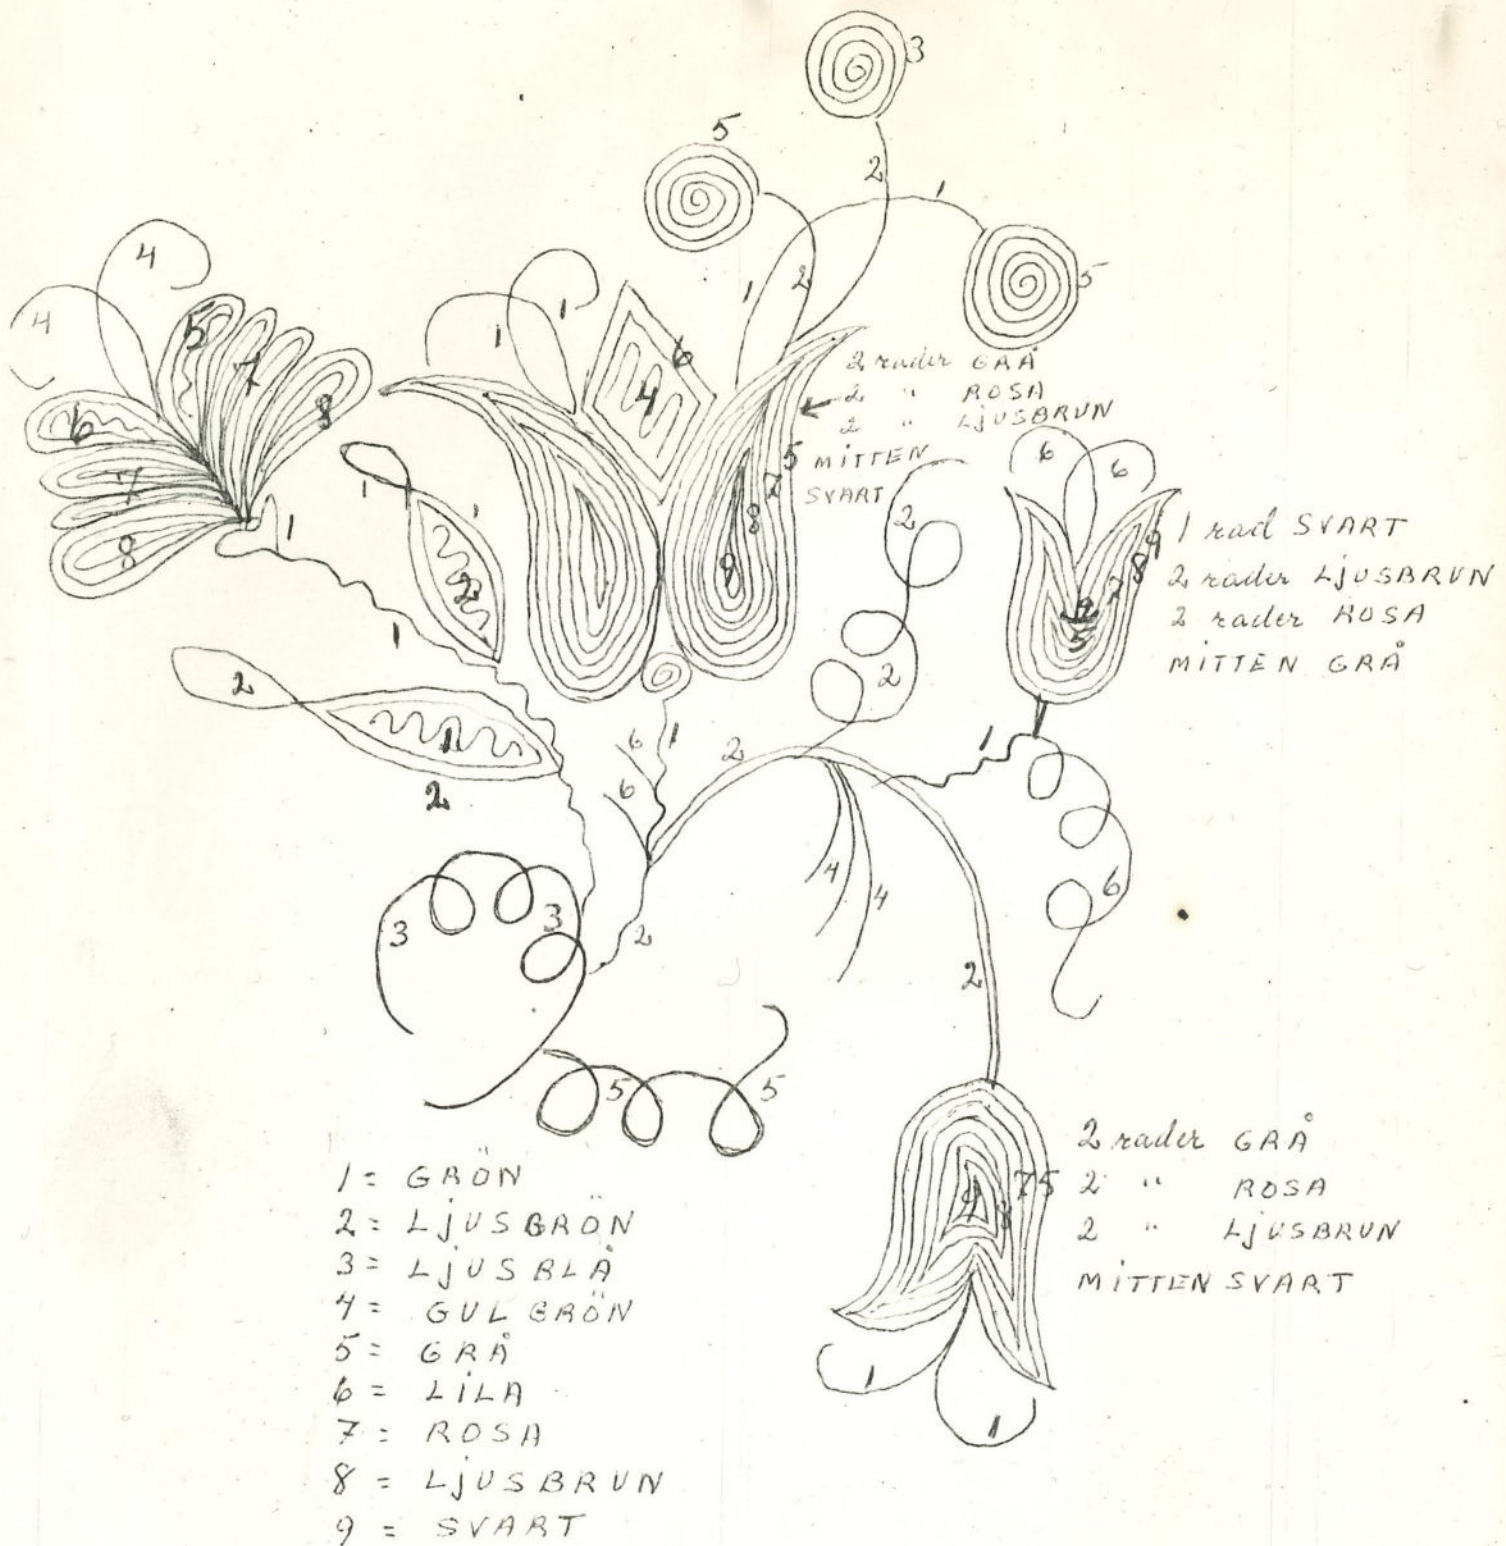 3
5
2
1
4
5
1
2
4
1
1
5
7
6
8
4
6
7
8
2 rader GRÅ
2 " ROSA
2 " LJUSBRUN
5 MITTEN
7 SVART
8
9
1
1
2
1
1
2
6
6
9
8
7
9
5
1 rad SVART
2 rader LJUSBRUN
2 rader ROSA
MITTEN GRÅ
2
1
2
2
6
1
6
2
1
4
4
6
3
3
2
2
5
5
2 rader GRÅ
75 2 " ROSA
9 8 2 " LJUSBRUN
MITTEN SVART
1
1
1 = GRÖN
2 = LJUSGRÖN
3 = LJUSBLÅ
4 = GULGRÖN
5 = GRÅ
6 = LILA
7 = ROSA
8 = LJUSBRUN
9 = SVART